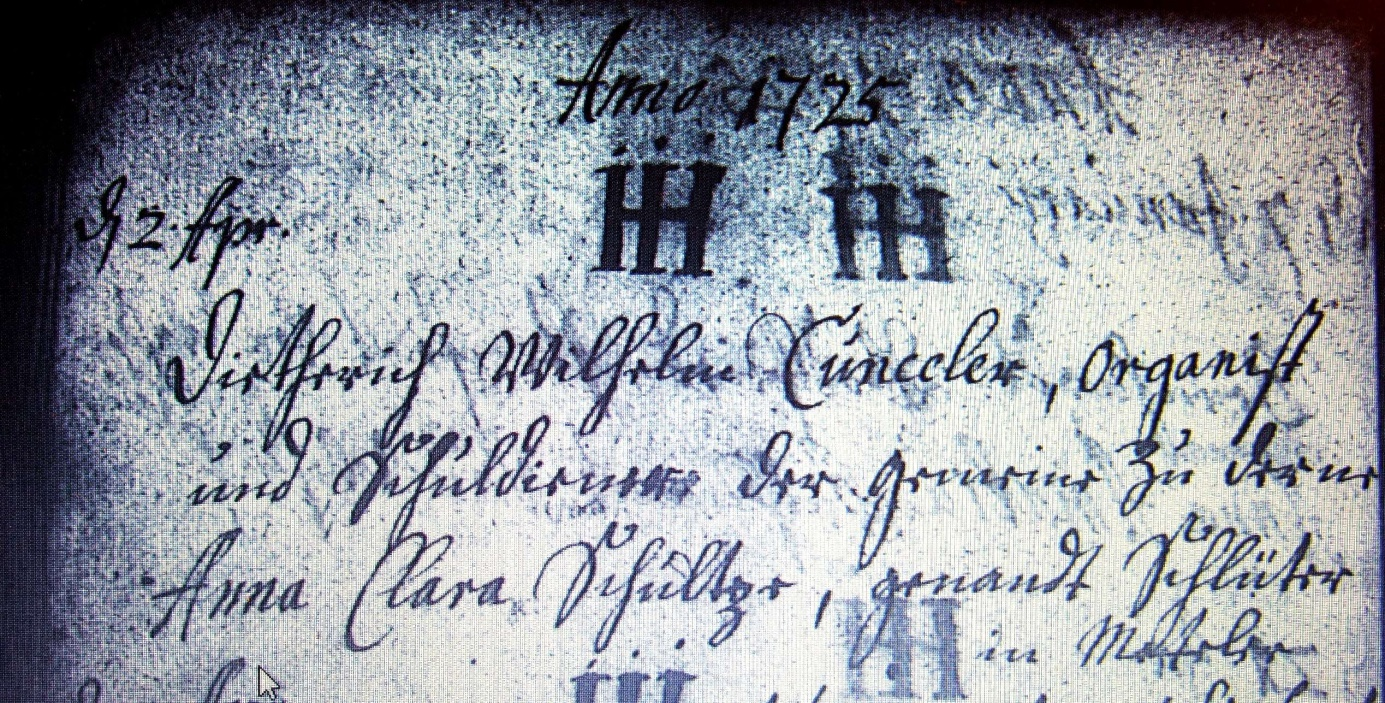 Anno 1725
d 2. Apr.
Dietherich Wilhelm Cüneeler, Organist
und Schuldiener der Gemeine zu Derne
Anna Clara Schultze, genandt Schlüter
in Meteler